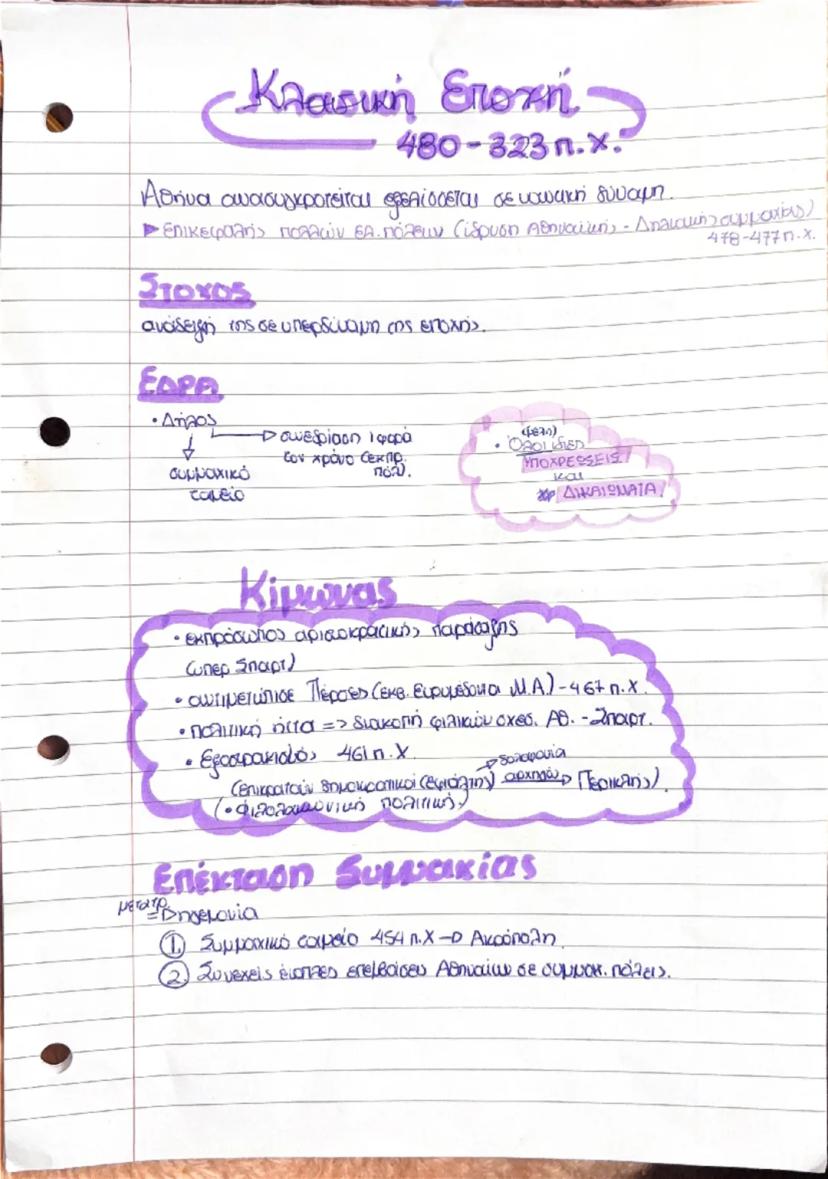 Κλασική Εποχή
480-323 π.Χ.
Αθήνα ανασυγκροτείται εξελίσσεται σε ναυτική δύναμη.
Επικεφαλής πολλών ελ. πόλεων (ίδρυση Αθηναϊκής - Δηλιακής συμμαχίας)
478-477 π.Χ.
Στοχος
ανάδειξη της σε υπερδύναμη της εποχής.
ΕΔΡΑ
• Δήλος
συνεδρίαση 1 φορά
τον χρόνο (εκπρ.
πόλ.
συμμαχικό
ταμείο
(μέλη)
• Όλοι ίδιες
ΥΠΟΧΡΕΩΣΕΙΣ
και
ΔΙΚΑΙΩΜΑΤΑ!
Κίμωνας
• εκπρόσωπος αριστοκρατικής παράταξης
(υπερ Σπαρτ)
• αντιμετώπισε Πέρσες (εκβ. Ευρυμέδοντα Μ.Α.) - 467 π.Χ.
• πολιτική ήττα => διακοπή φιλικών σχεσ. Αθ. - Σπαρτ.
• Εξοστρακισμός 461 π.Χ
(επικρατούν δημοκρατικοί (Εφιάλτης) → δολοφονία αρχηγών → Περικλής)
(• φιλολακωνική πολιτική)
Επέκταση Συμμαχίας
μετατρ.
=> ηγεμονία
① Συμμαχικό ταμείο 454 π.Χ → Ακρόπολη.
② Συνεχείς ένοπλες επεμβάσεις Αθηναίων σε συμμαχ. πόλεις.